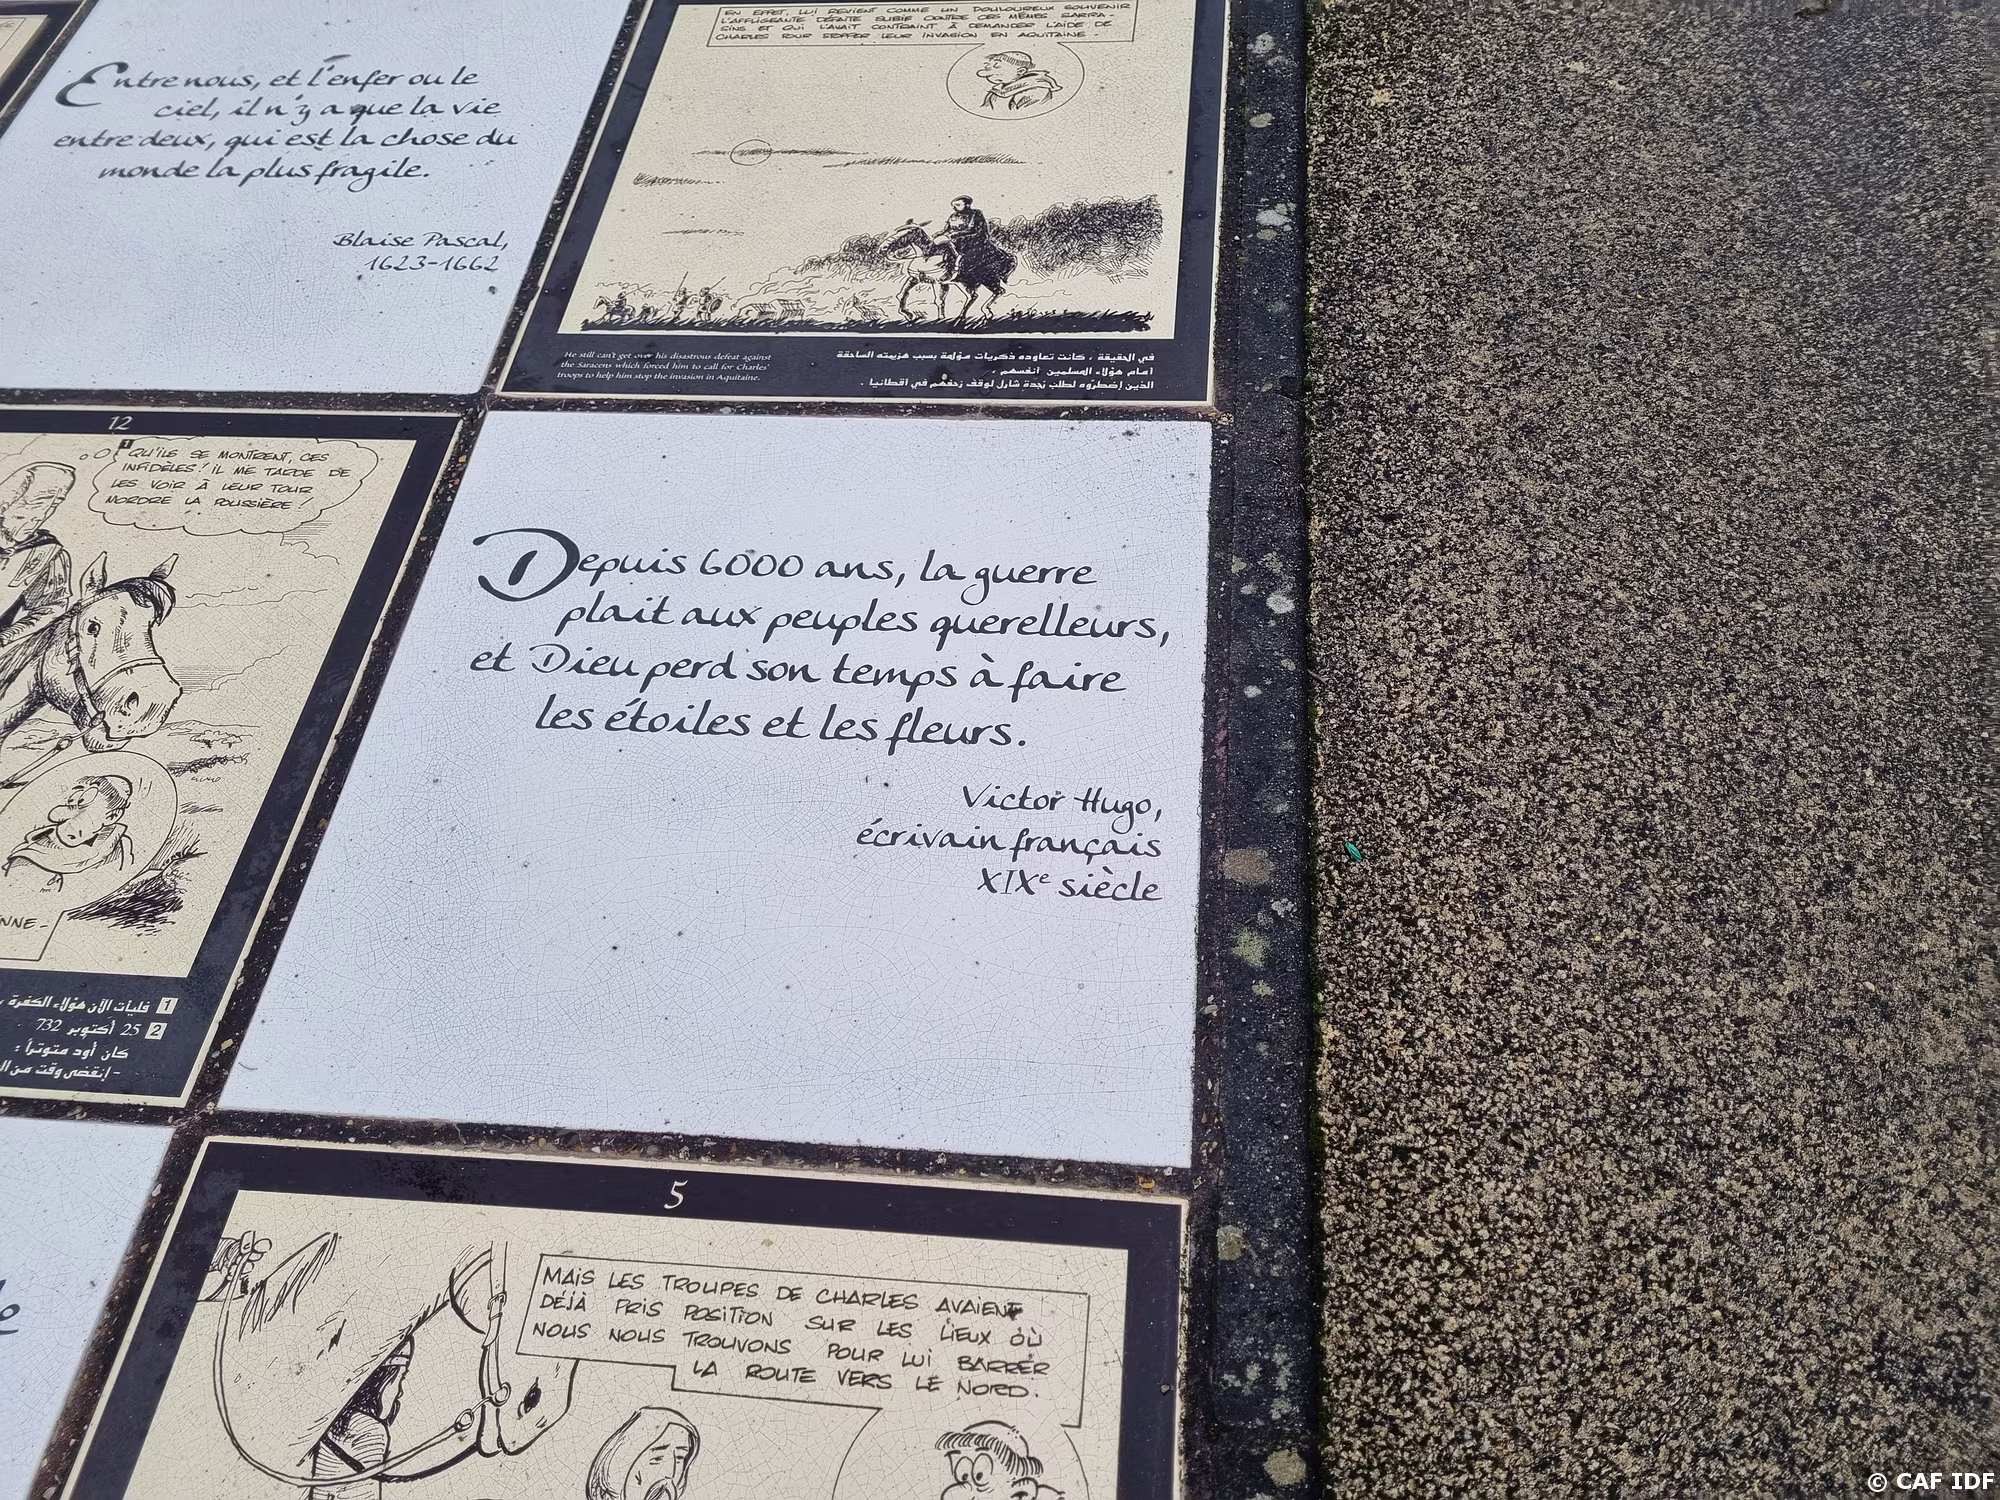 Entre nous, et l'enfer ou le
ciel, il n'y a que la vie
entre deux, qui est la chose du
monde la plus fragile.
Blaise Pascal,
1623-1662
EN EFFET, LUI REVIENT COMME UN DOULOUREUX SOUVENIR
L'AFFLIGEANTE DÉFAITE SUBIE CONTRE CES MÊMES SARRA-
SINS ET QUI L'AVAIT CONTRAINT À DEMANDER L'AIDE DE
CHARLES POUR STOPPER LEUR INVASION EN AQUITAINE.
He still can't get over his disastrous defeat against
the Saracens which forced him to call for Charles'
troops to help him stop the invasion in Aquitaine.
في الحقيقة ، كانت تعاوده ذكريات مؤلمة بسبب هزيمته الساحقة
أمام هؤلاء المسلمين أنفسهم ،
الذين إضطروه لطلب نجدة شارل لوقف زحفهم في أقطانيا .
12
1
QU'ILS SE MONTRENT, CES
INFIDÈLES! IL ME TARDE DE
LES VOIR À LEUR TOUR
MORDRE LA POUSSIÈRE!
NNE-
1 فليأت الآن هؤلاء الكفرة
2 25 أكتوبر 732
كان أود متوترا :
- إنقضى وقت من
Depuis 6000 ans, la guerre
plait aux peuples querelleurs,
et Dieu perd son temps à faire
les étoiles et les fleurs.
Victor Hugo,
écrivain français
XIXe siècle
5
MAIS LES TROUPES DE CHARLES AVAIENT
DÉJÀ PRIS POSITION SUR LES LIEUX OÙ
NOUS NOUS TROUVONS POUR LUI BARRER
LA ROUTE VERS LE NORD.
© CAF IDF